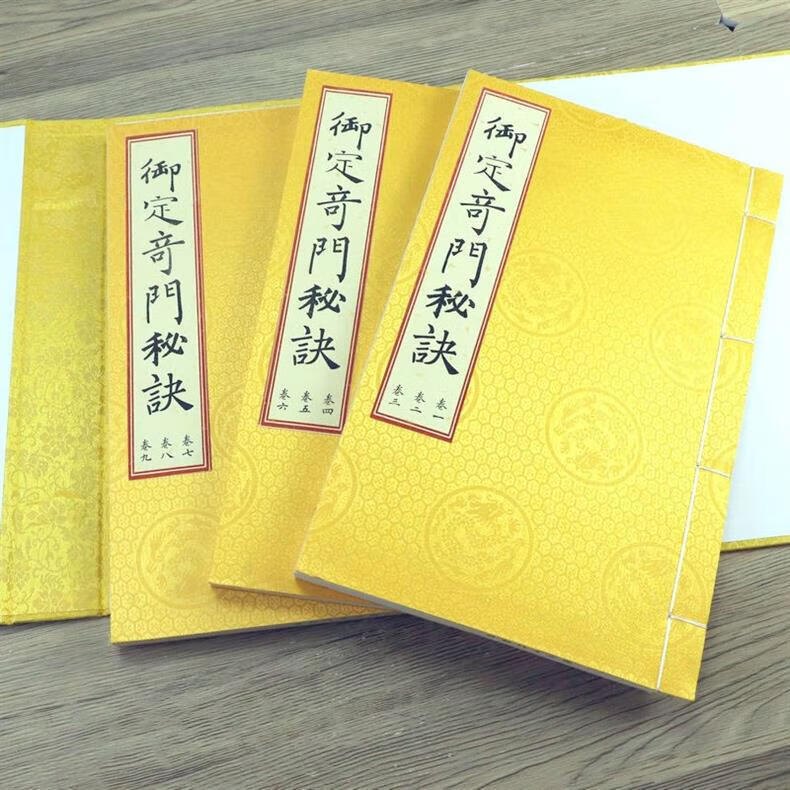 御定竒門秘訣
卷一
卷二
卷三
御定竒門秘訣
卷四
卷五
卷六
御定竒門秘訣
卷七
卷八
卷九